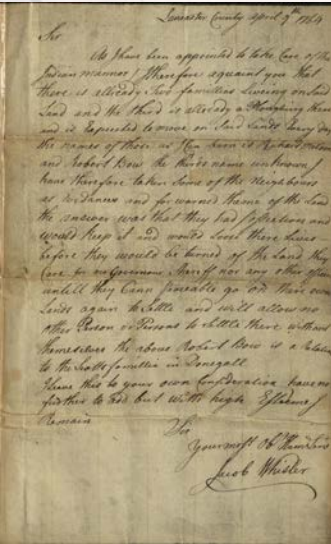 Lancaster County April 9th 1764
Sir
As I have been appointed to take Care of the
Indian mannor I therefore aquaint you that
there is allready Two famillies Liveing on said
Land and the third is allready a Ploughing there
and is Expected to move on Said Lands Every Day
the names of those as I Can hear is Richard
and Robert Bow the thirds name unknown I
have therefore taken Some of the Neighbours
as Evidances and for warned them of the Land
the answer was that they had possession and
would keep it and would Loose there Lives
before they would be turned of the Land they
Care for no Governour Sheriff nor any other officer
untill they Cann Go on their own
Lands again to Settle and will allow no
other Person or Persons to Settle there without
themselves the above Robert Bow is a Relation
to the Scotts familie in Donegall
I Leave this to your own Consideration have no
further to add but with high Esteeme I
Remain
Sir
Your most Obt Humb Servt
Jacob Whisler